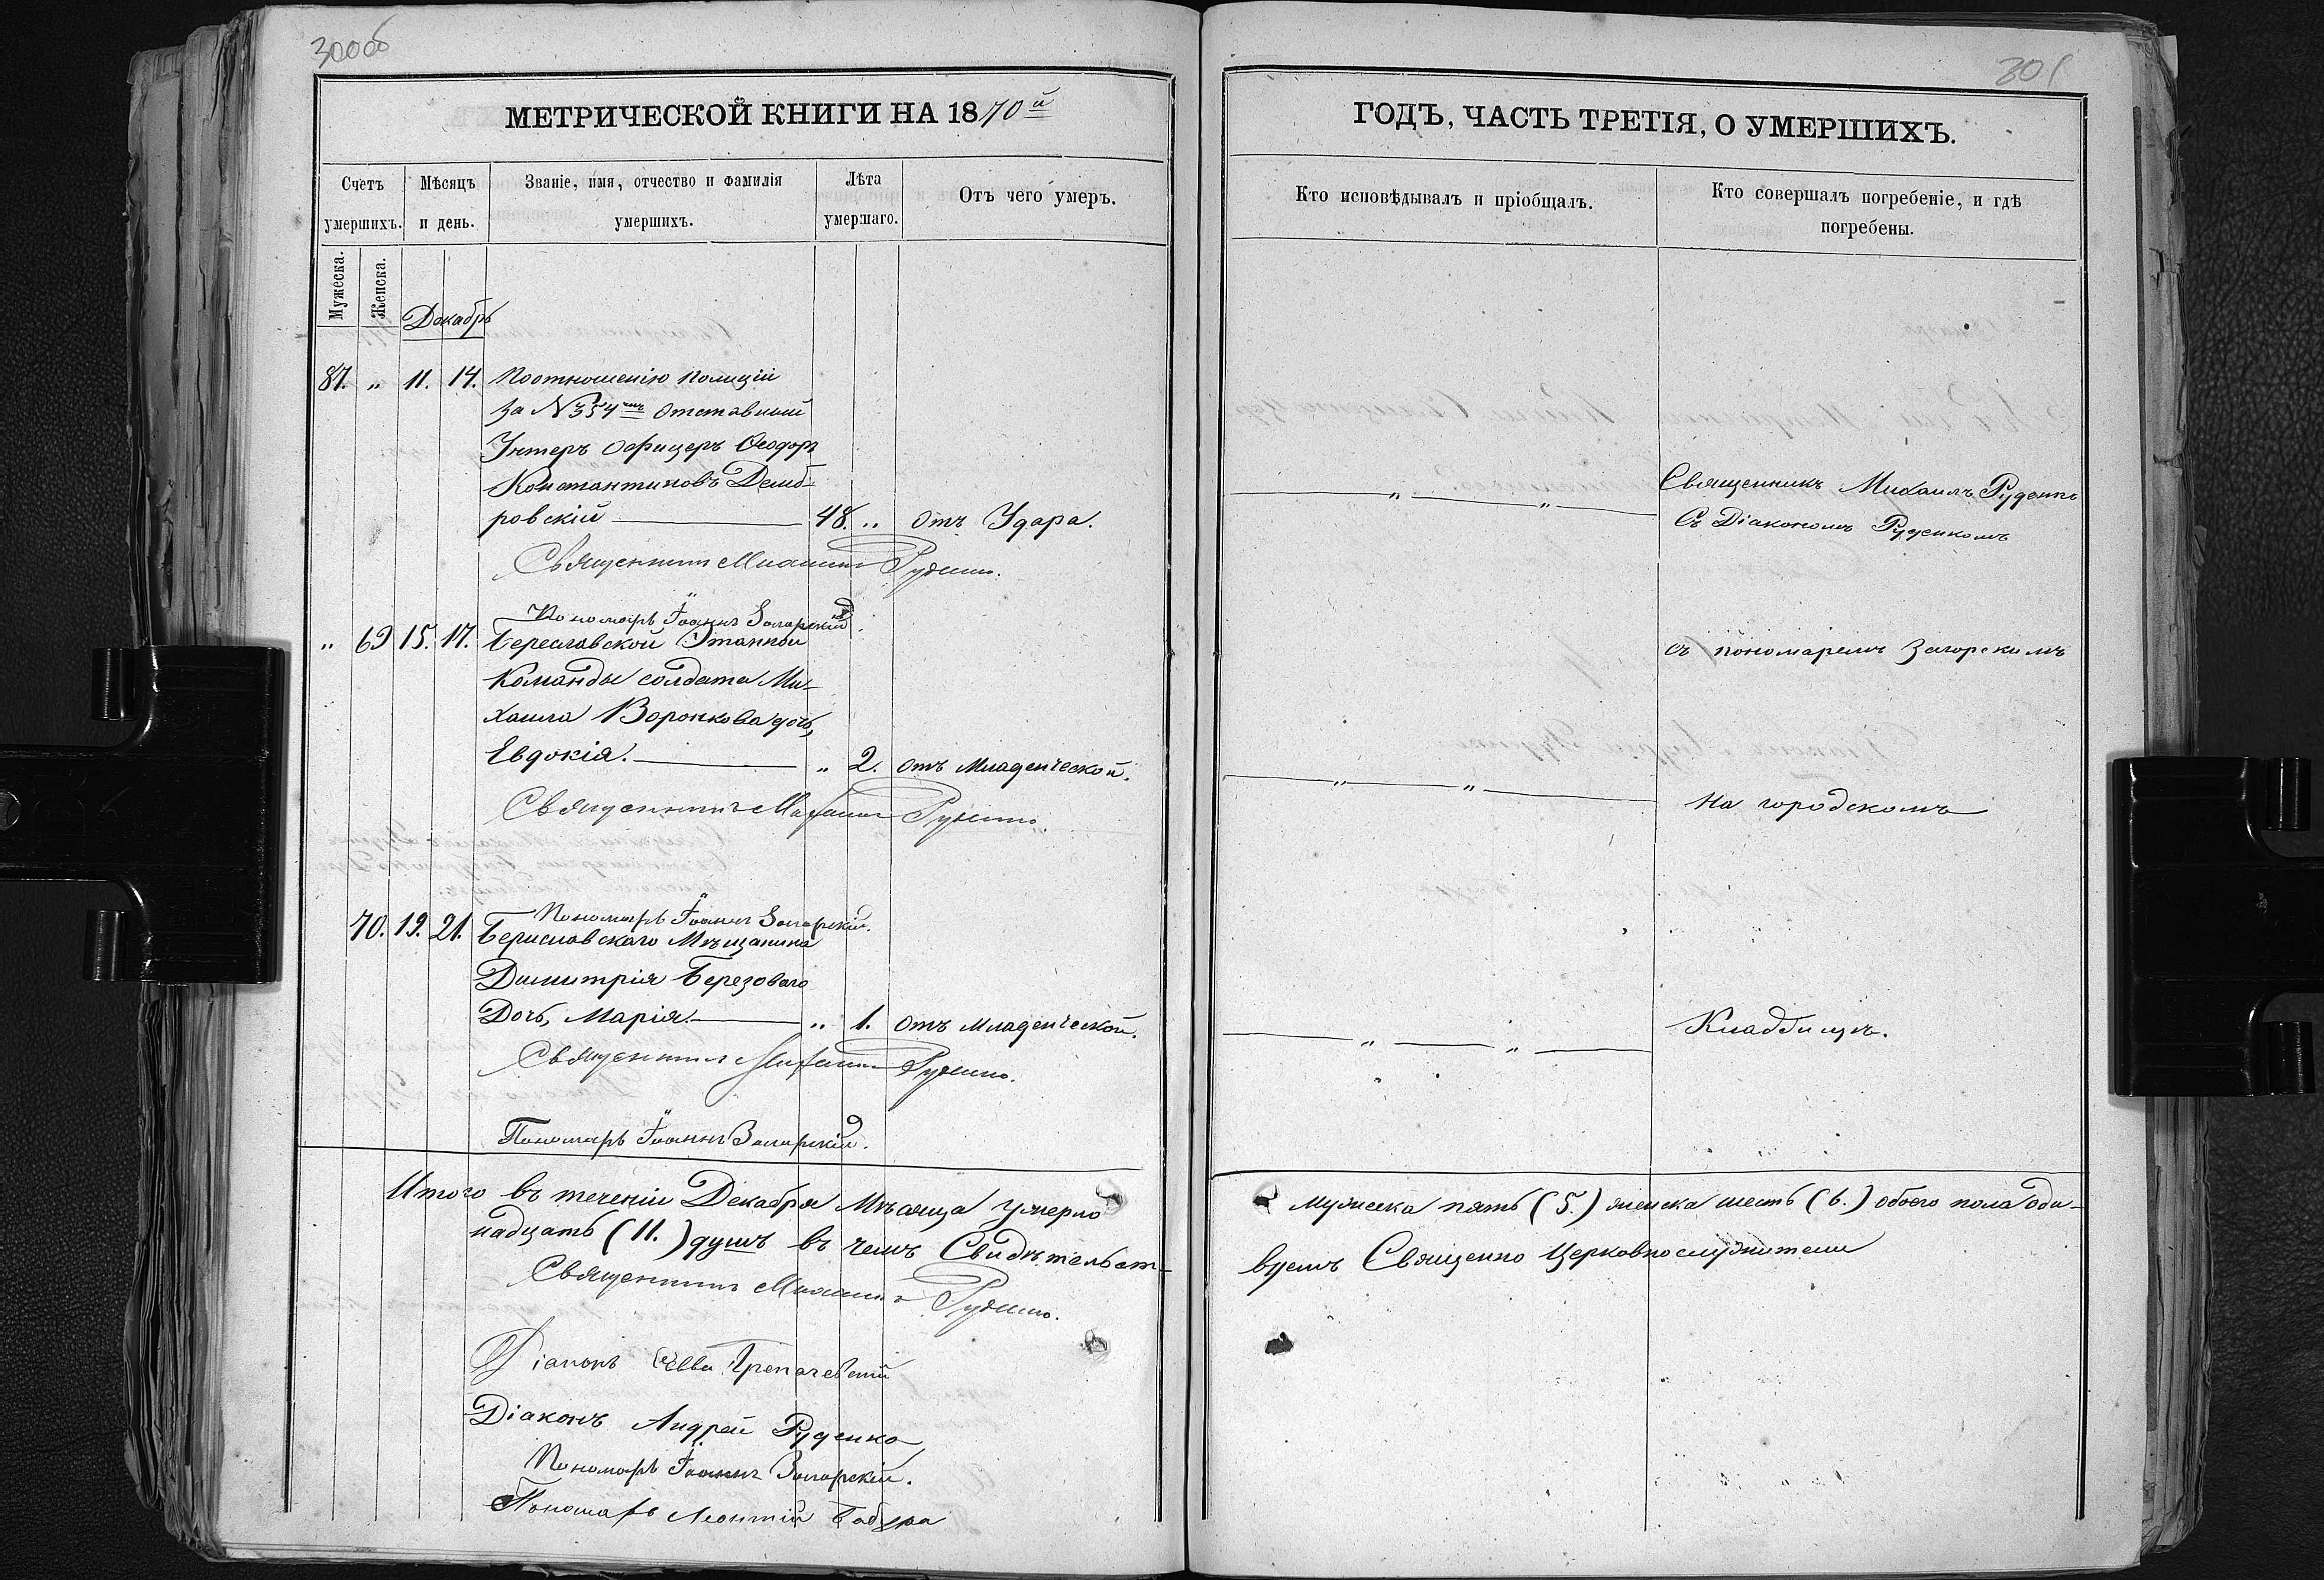 300об
МЕТРИЧЕСКОЙ КНИГИ НА 1870й
Счетъ умершихъ.
Мѣсяцъ и день.
Званіе, имя, отчество и фамилія умершихъ.
Лѣта умершаго.
Отъ чего умеръ.
Мужеска.
Женска.
Декабрь
87. „ 11. 14. По отношенію полиціи
за № 354мъ отставный
Унтеръ офицеръ Ѳеодоръ
Константиновъ
ровскій 48. „ отъ Удара.
Священникъ Михаилъ Руденко.
Пономарь Іоаннъ Загорскій
„ 69 15. 17. Береславской Этапной
Команды солдата Ми-
хаила Воронкова дочь,
Евдокія. „ 2. отъ Младенческой.
Священникъ Михаилъ Руденко.
Пономарь Іоаннъ Загорскій.
70. 19. 21. Бериславскаго Мѣщанина
Димитрія Березоваго
Дочь, Марія. „ 1. отъ младенческой.
Священникъ Михаилъ Руденко.
Пономарь Іоаннъ Загорскій.
Итого въ теченіи Декабря Мѣсяца умерло
надцать (11.) душъ въ чемъ Свидѣтельст-
Священникъ Михаилъ Руденко.
Діаконъ
Діаконъ Андрей Руденко
Пономарь Іоаннъ Загорскій.
Пономарь Леонтій
301
ГОДЪ, ЧАСТЬ ТРЕТІЯ, О УМЕРШИХЪ.
Кто исповѣдывалъ и пріобщалъ.
Кто совершалъ погребеніе, и гдѣ
погребены.
„ „ Священникъ Михаилъ Руденко
Съ Діакономъ Руденкомъ
съ пономаремъ Загорскимъ
„ „ На городскомъ
„ „ Кладбищѣ.
мужеска пять (5.) женска шесть (6.) обоего пола оди-
вуемъ Священно Церковнослужители